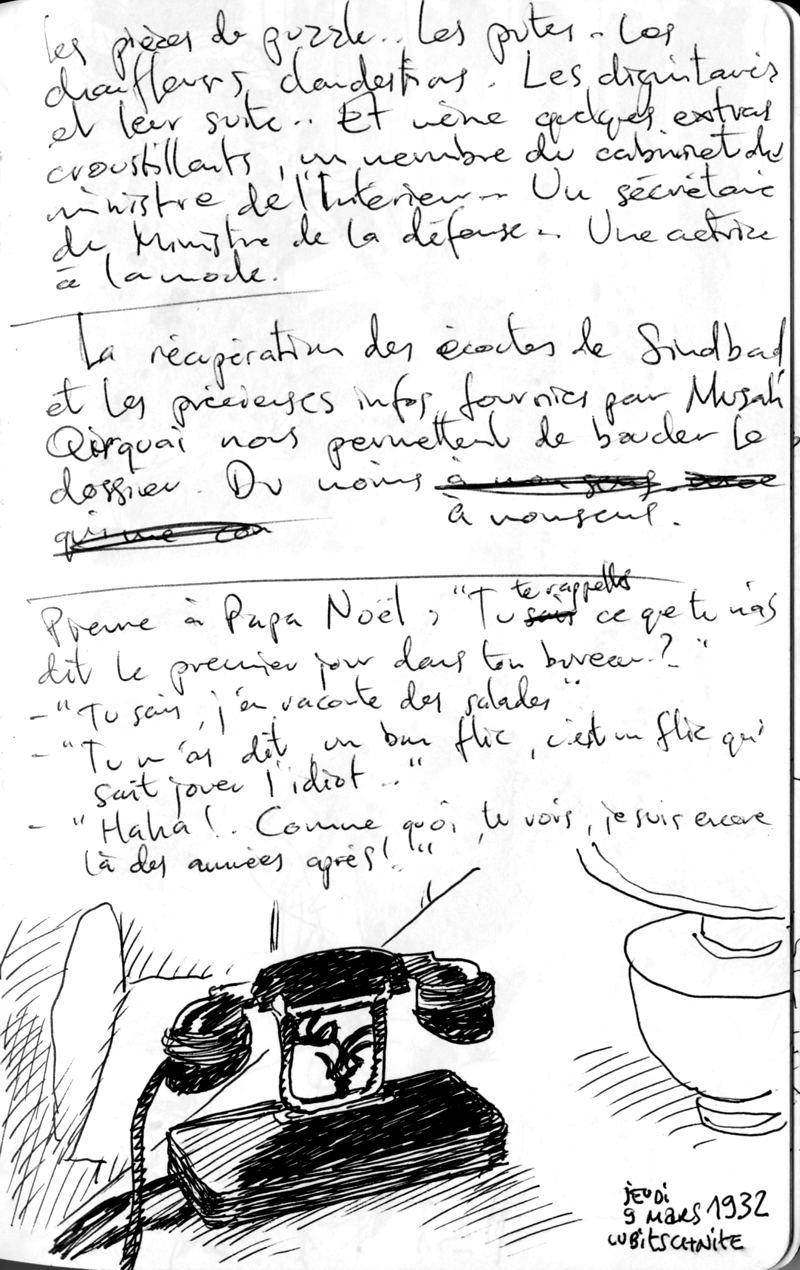 les pièces de puzzle.. Les putes - Les
chauffeurs clandestins. Les dignitaires
et leur suite.. Et même quelques extras
croustillants, un membre du cabinet du
ministre de l'Intérieur.. Un secrétaire
du Ministre de la défense.. Une actrice
à la mode.
La récupération des écoutes de Sindbad
et les précieuses infos fournies par Musah
Qirquai nous permettent de boucler le
dossier. Du moins
à mon seul.
te rappelles
Pierre à Papa Noël, "Tu sais ce que tu m'as
dit le premier jour dans ton bureau?"
- "Tu sais, j'en raconte des salades"
- "Tu m'as dit, un bon flic, c'est un flic qui
sait jouer l'idiot.."
- "Haha!.. Comme quoi, tu vois, je suis encore
là des années après!.."
JEUDI
9 MARS 1932
LUBITSCHNITE